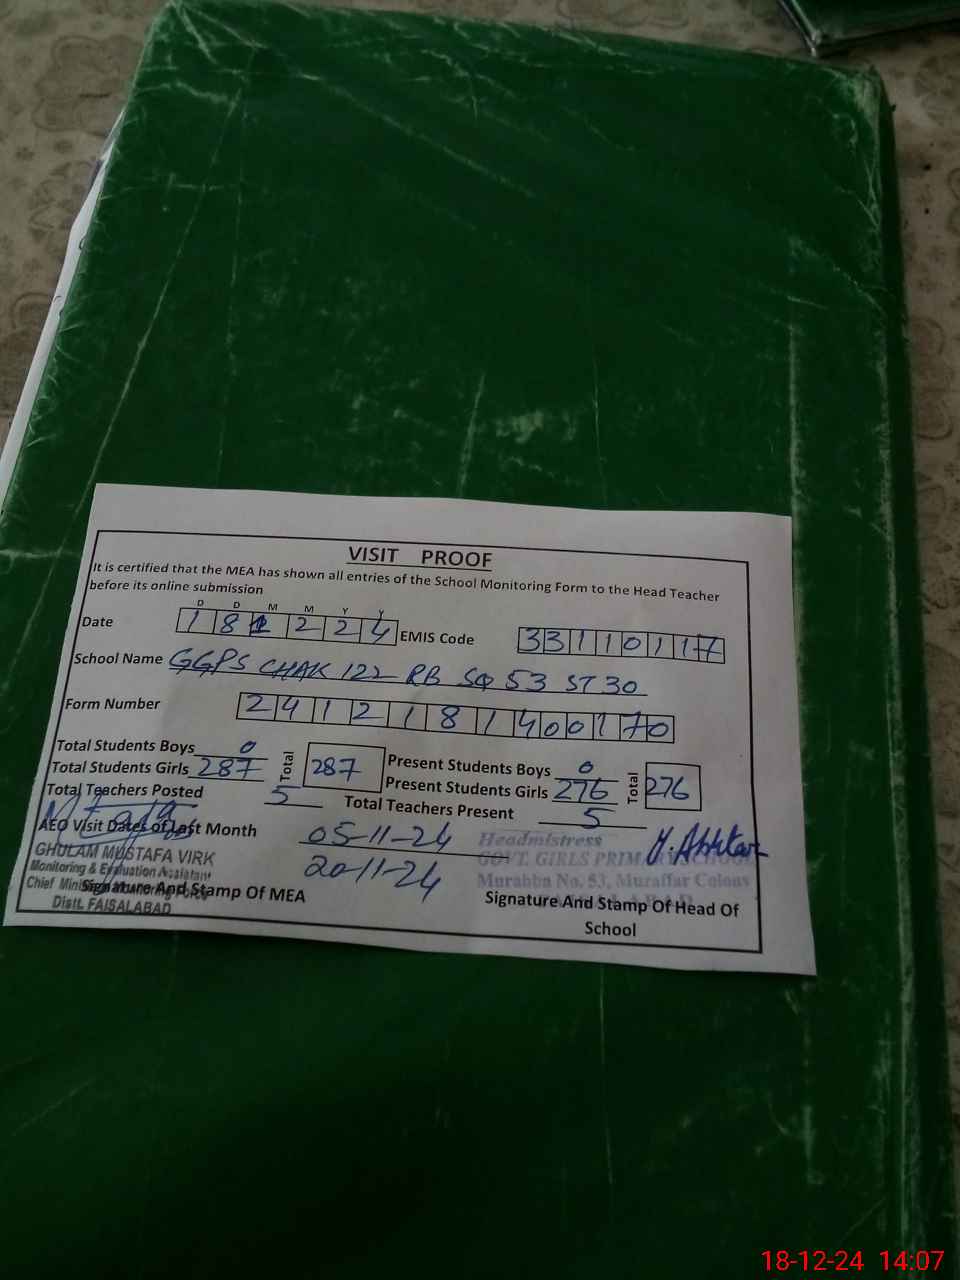 VISIT PROOF
It is certified that the MEA has shown all entries of the School Monitoring Form to the Head Teacher
before its online submission
D D M M Y Y
Date 181224 EMIS Code 33110117
School Name GGPS CHAK 122 RB SQ 53 ST 30
Form Number 2412181400170
Total Students Boys 0 Total 287 Present Students Boys 0 Total 276
Total Students Girls 287 Present Students Girls 276
Total Teachers Posted 5 Total Teachers Present 5
AEO Visit Dates of Last Month 05-11-24
20-11-24
Headmistress
GOVT. GIRLS PRIMARY SCHOOL
Murabba No. 53, Muraffar Colony
GHULAM MUSTAFA VIRK
Monitoring & Evaluation Assistant
Chief
Distt. FAISALABAD
Signature And Stamp Of MEA
Signature And Stamp Of Head Of
School
18-12-24 14:07